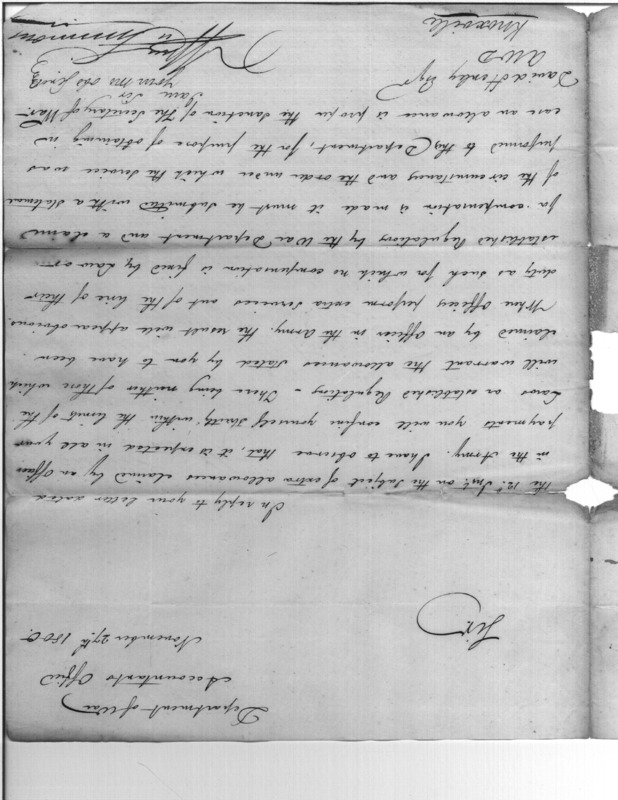 Department of War
Accountants Office
November 27th 1800.
Sir,
In reply to your letter dated
the 12th Inst. on the subject of extra allowances claimed by an Officer
in the Army. I have to observe that, it is expected in all your
payments you will confine yourself strictly within the limits of the
Laws or established Regulations – There being neither of these which
will warrant the allowances stated by you to have been
claimed by an Officer in the Army, the result will appear obvious.
When Officers perform extra services out of the line of their
duty as such for which no compensation is fixed by Law or
established Regulations by the War Department and a claim
for compensation is made it must be submitted with a statement
of the circumstances and the order under which the service was
performed to this Department, for the purpose of obtaining in
case an allowance is proper the sanction of the Secretary of War.
I am Sir
your mo obt Servt
Wm Simmons
David Henley Esqr
AWD
Knoxville